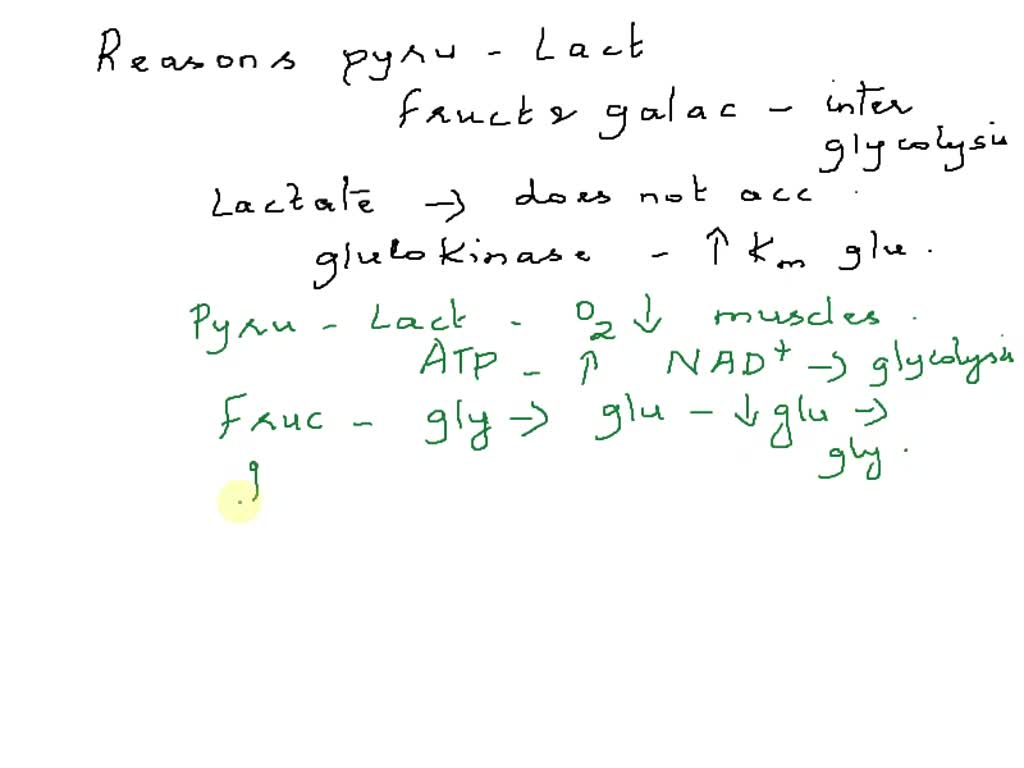 Reasons pyru - Lact
Fruct & galac - inter
glycolysis
Lactate → does not acc.
glucokinase - ↑ Km glu.
Pyru - Lact - O2 ↓ muscles.
ATP - ↑ NAD+ → glycolysis
Fruc - gly → glu - ↓ glu →
gly.
g